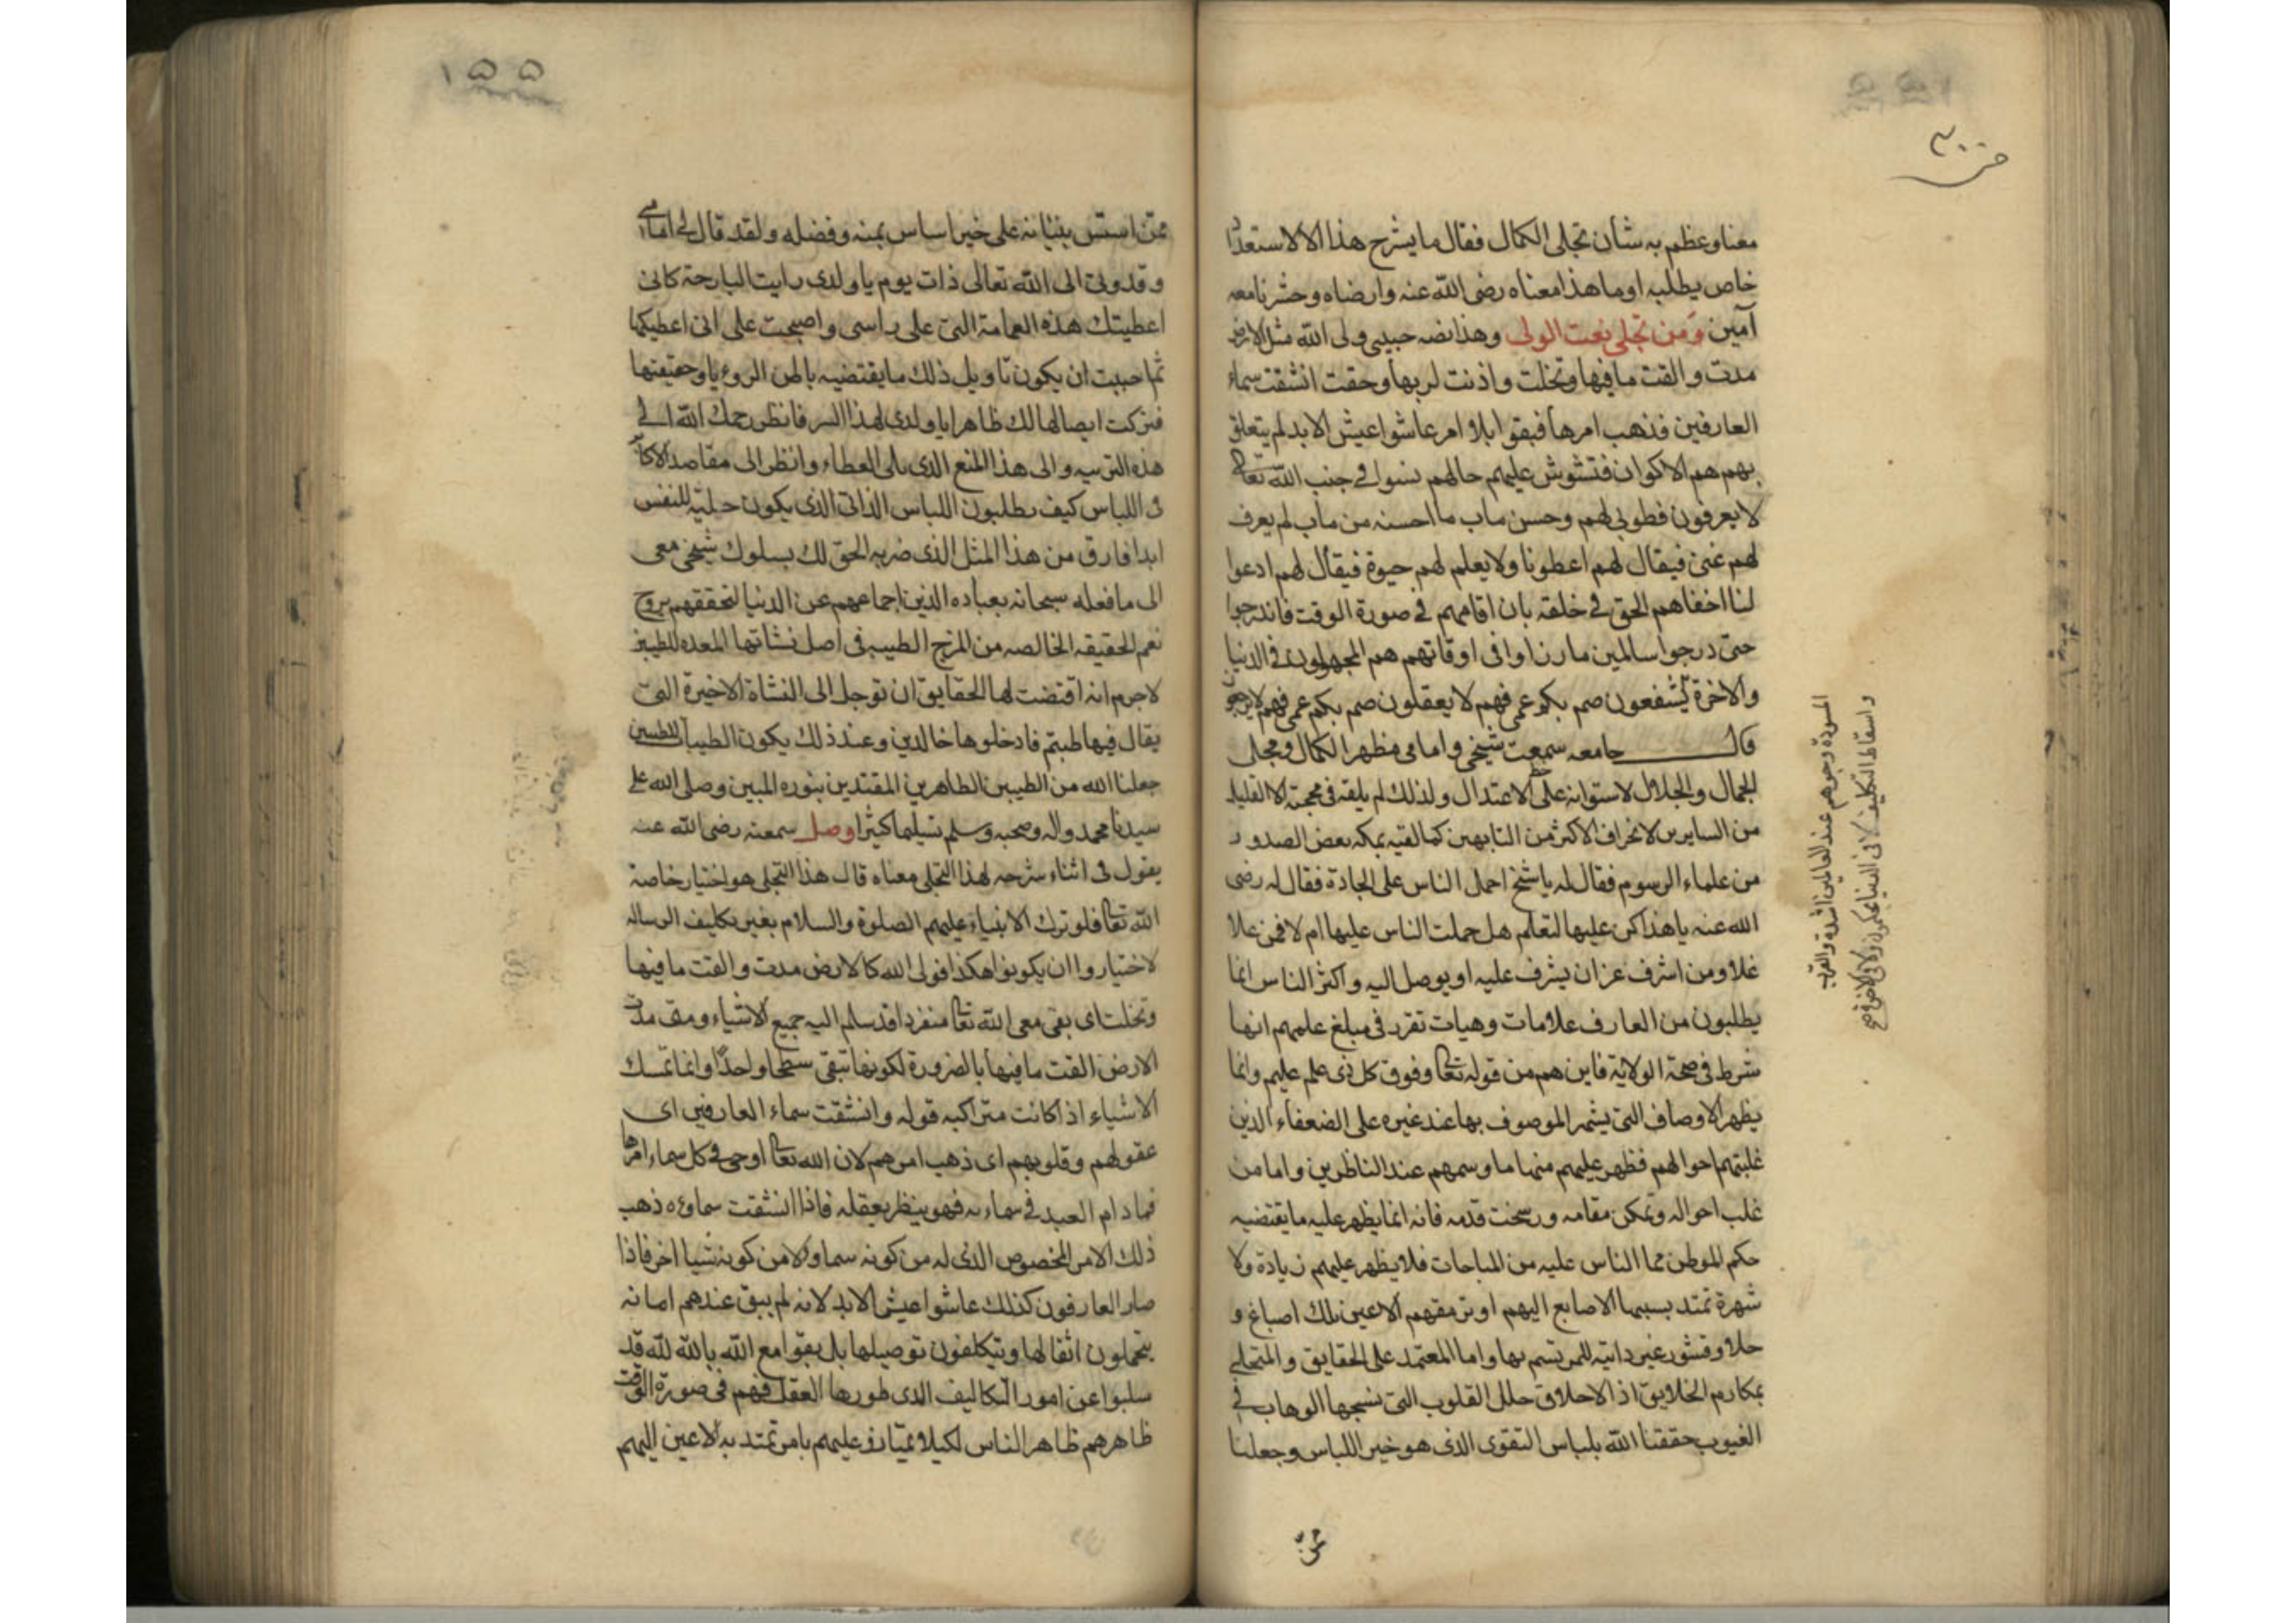 معنا وعظم به شأن تجلى الكمال فقال ما يشرح هذا الا لاستعداد
خاص يطلبه او ما هذا معناه رضى الله عنه وارضاه وحشرنا معه
آمين ومن تجلى نعت الولى وهذا نصه حبيبى ولى الله مثل الارض
مدت والقت ما فيها وتخلت واذنت لربها وحقت انشقت سماء
العارفين فذهب امرها فبقوا بلا امر عاشوا عيش الابد لم يتعلق
بهم هم الاكوان فتشوش عليهم حالهم نسوا فى جنب الله تعالى
لا يعرفون فطوبى لهم وحسن مآب ما احسنه من مآب لم يعرف
لهم غنى فيقال لهم اعطونا ولا يعلم لهم حيوة فيقال لهم ادعوا
لنا اخفاهم الحق فى خلقه بان اقامهم فى صورة الوقت فاندرجوا
حتى درجوا سالمين ما رزاوا فى اوقاتهم هم المجهولون فى الدنيا
والاخرة يشفعون صم بكم عمى فهم لا يعقلون صم بكم عمى فهم لا يرجعون
قال جامعه سمعت شيخى وامامى مظهر الكمال ومجلى
الجمال والجلال لاستوائه على الاعتدال ولذلك لم يلقه فى محجته الا القليل
من السايرين لانحراف الاكثر من التايهين كما لقيه بمكه بعض الصدور
من علماء الرسوم فقال له يا شيخ احمل الناس على الجادة فقال له رضى
الله عنه يا هذا كن عليها لتعلم هل حملت الناس عليها ام لا فمن علا
علا ومن اشرف عز ان يشرف عليه او يوصل اليه واكثر الناس انما
يطلبون من العارف علامات وهيات تقرر فى مبلغ علمهم انها
شرط فى صحة الولاية فاين هم من قوله تعالى وفوق كل ذى علم عليم وانما
يظهر الاوصاف التى يشهر الموصوف بها عند غيره على الضعفاء الذين
غلبتهم احوالهم فظهر عليهم منها ما وسمهم عند الناظرين واما من
غلب احواله وتمكن مقامه ورسخت قدمه فانه انما يظهر عليه ما يقتضيه
حكم الموطن مما الناس عليه من المباحات فلا يظهر عليهم زيادة ولا
شهرة تمتد بسببها الاصابع اليهم او ترمقهم الاعين تلك اصباغ و
حلا وقشور غير ذاتية للمرتسم بها واما المعتمد على الحقايق والمتحلى
بمكارم الخلايق اذ الاخلاق حلل القلوب التى نسجها الوهاب فى
الغيوب حققنا الله بلباس التقوى الذى هو خير اللباس وجعلنا
المسودة وجوههم عند العالمين الشدة والقرب
واسقاط التكليف لا فى الدنيا يحكمون ولا فى الاخرة صح
١٥٥
ممن اسس بنيانه على خير اساس بمنه وفضله ولقد قال لى امامى
وقدوتى الى الله تعالى ذات يوم يا ولدى رايت البارحة كانى
اعطيتك هذه العمامة التى على راسى واصبحت على انى اعطيكها
ثم احببت ان يكون تاويل ذلك ما يقتضيه باطن الرويا وحقيقتها
فتركت ايصالها لك ظاهرا يا ولدى لهذا السر فانظر رحمك الله الى
هذه التربيه والى هذا المنع الذى على العطاء وانظر الى مقاصد الاكابر
فى اللباس كيف يطلبون اللباس الذاتى الذى يكون حلية للنفس
ابدا فارق من هذا المثل الذى ضربه الحق لك بسلوك شيخى معى
الى ما فعله سبحانه بعباده الذين اجماعهم عن الدنيا لتحققهم بروح
نعم الحقيقه الخالصه من المزج الطيبه فى اصل نشاتها المعده للطيبين
لا جرم انه اقتضت لها الحقايق ان توجل الى النشاة الاخيرة التى
يقال فيها طبتم فادخلوها خالدين وعند ذلك يكون الطيبات للطيبين
جعلنا الله من الطيبين الطاهرين المقتدين بنوره المبين وصلى الله على
سيدنا محمد واله وصحبه وسلم تسليما كثيرا وصل سمعته رضى الله عنه
يقول فى اثناء شرحه لهذا التجلى معناه قال هذا التجلى هو اختيار خاصة
الله تعالى فلو ترك الانبياء عليهم الصلوة والسلام بغير تكليف الرساله
لاختاروا ان يكونوا هكذا فولى الله كالارض مدت والقت ما فيها
وتخلت اى بقى مع الله تعالى منفردا قد سلم اليه جميع الاشياء ومتى مدت
الارض القت ما فيها بالضرورة لكونها تبقى سطحا واحدا وانما تمسك
الاشياء اذا كانت متراكبه قوله وانشقت سماء العارفين اى
عقولهم وقلوبهم اى ذهب امرهم لان الله تعالى اوحى فى كل سماء امرها
فما دام العبد فى سماءيه فهو ينظر بعقله فاذا انشقت سماؤه ذهب
ذلك الامر المخصوص الذى له من كونه سما ولا من كونه شيا اخر فاذا
صار العارفون كذلك عاشوا عيش الابد لانه لم يبق عندهم امانه
يتحملون اثقالها ويتكلفون توصيلها بل بقوا مع الله بالله لله قد
سلبوا عن امور التكاليف الذى طورها العقل فهم فى صورة الوقت
ظاهرهم ظاهر الناس لكيلا يمتازو عليهم بامر تمتد به الاعين اليهم